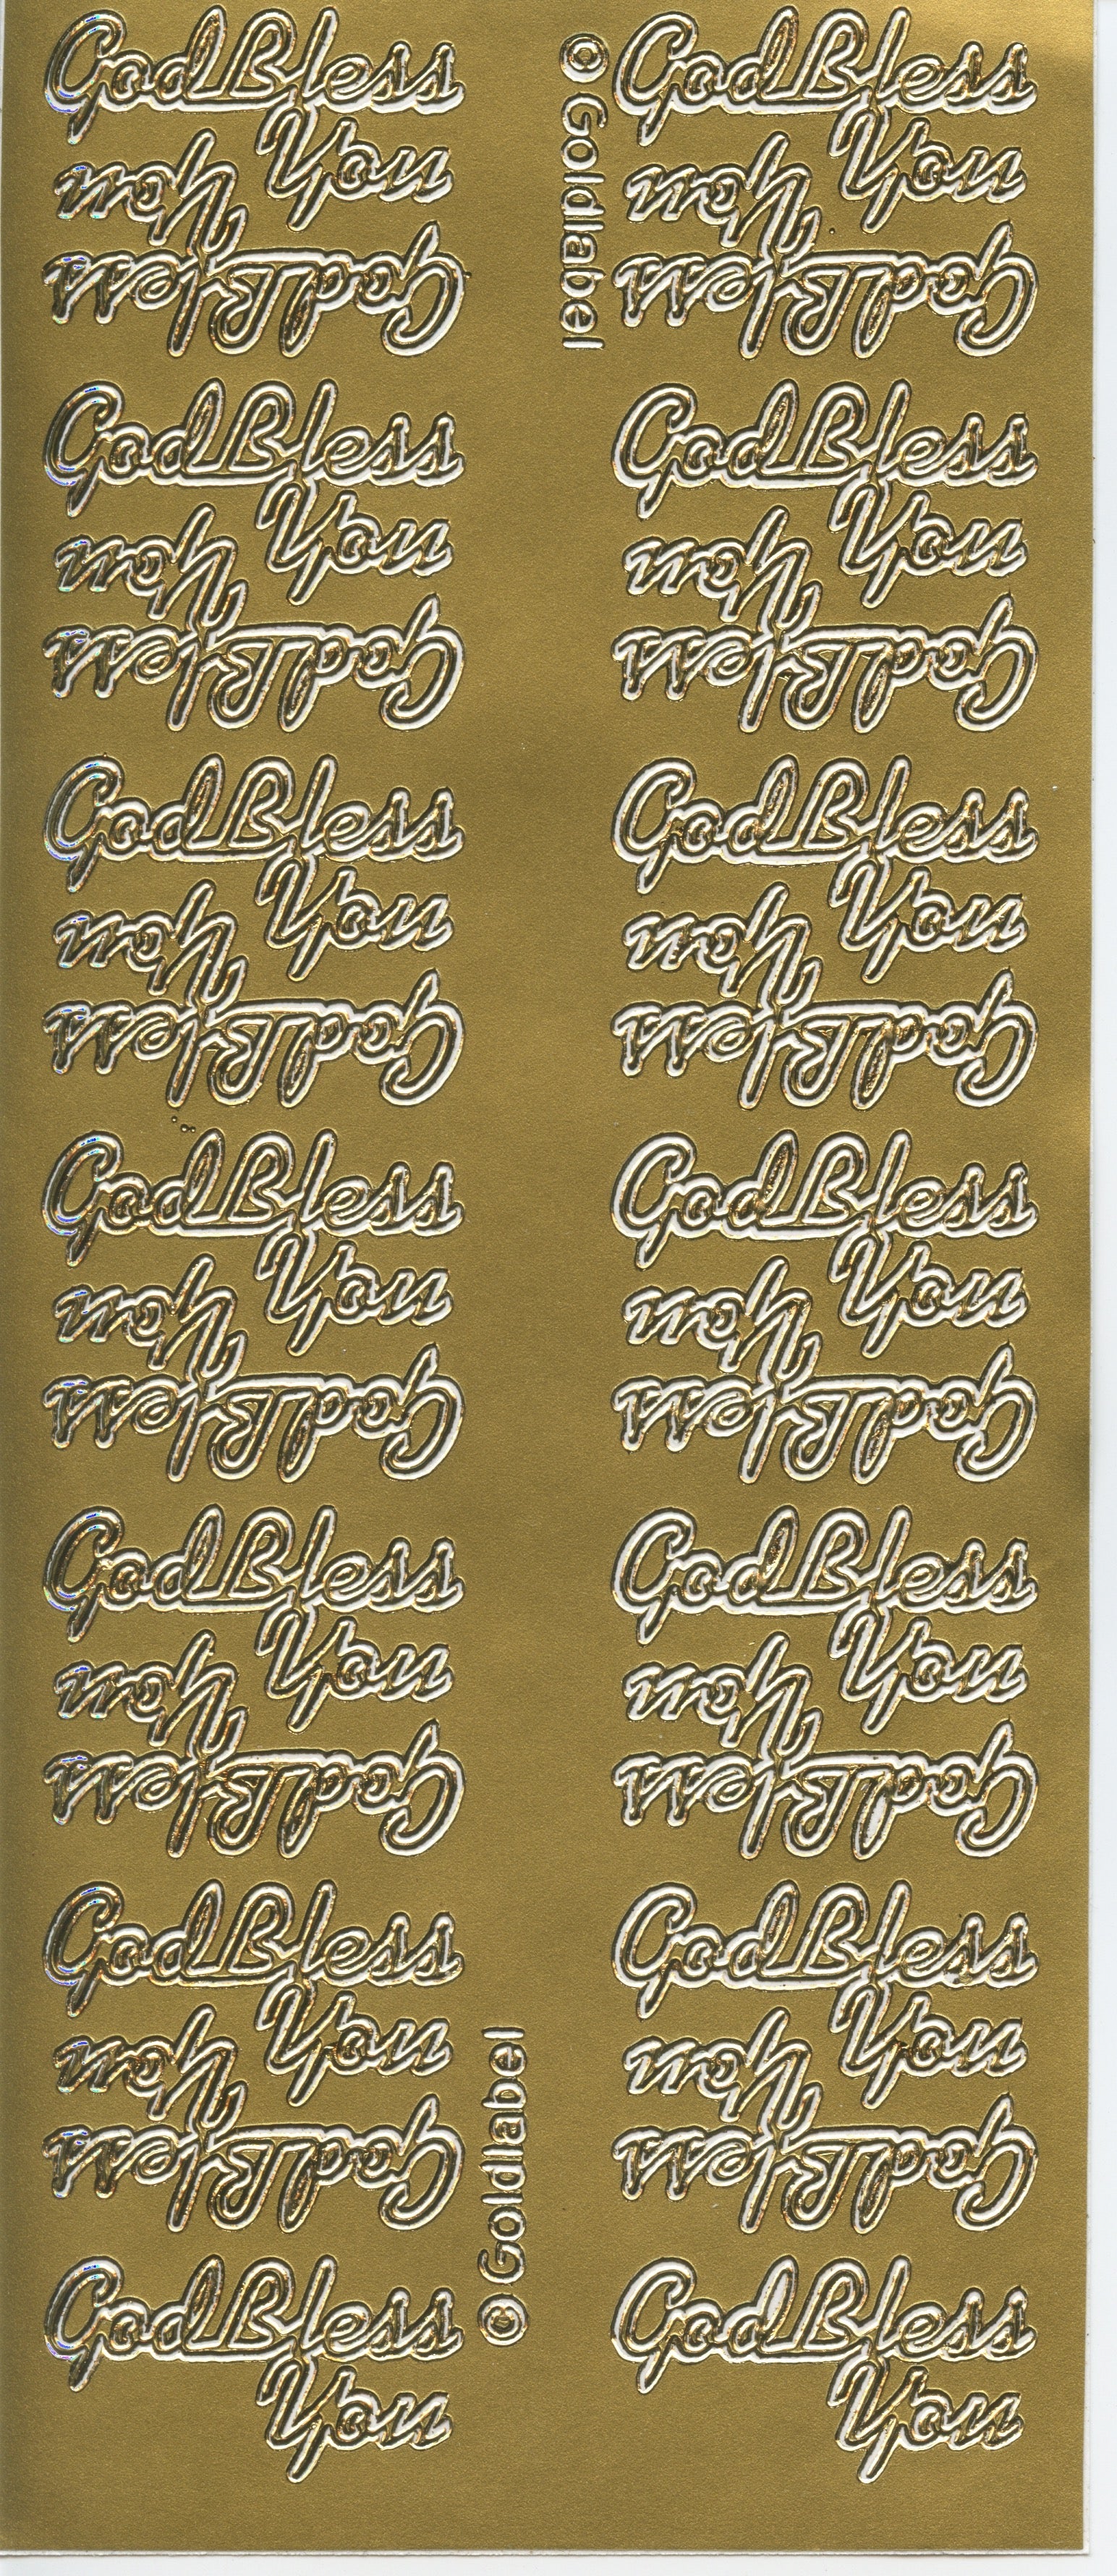 God Bless
You
God Bless
You
God Bless
You
God Bless
You
God Bless
You
God Bless
You
God Bless
You
God Bless
You
God Bless
You
God Bless
You
God Bless
You
God Bless
You
God Bless
You
© Goldlabel
© Goldlabel
God Bless
You
God Bless
You
God Bless
You
God Bless
You
God Bless
You
God Bless
You
God Bless
You
God Bless
You
God Bless
You
God Bless
You
God Bless
You
God Bless
You
God Bless
You